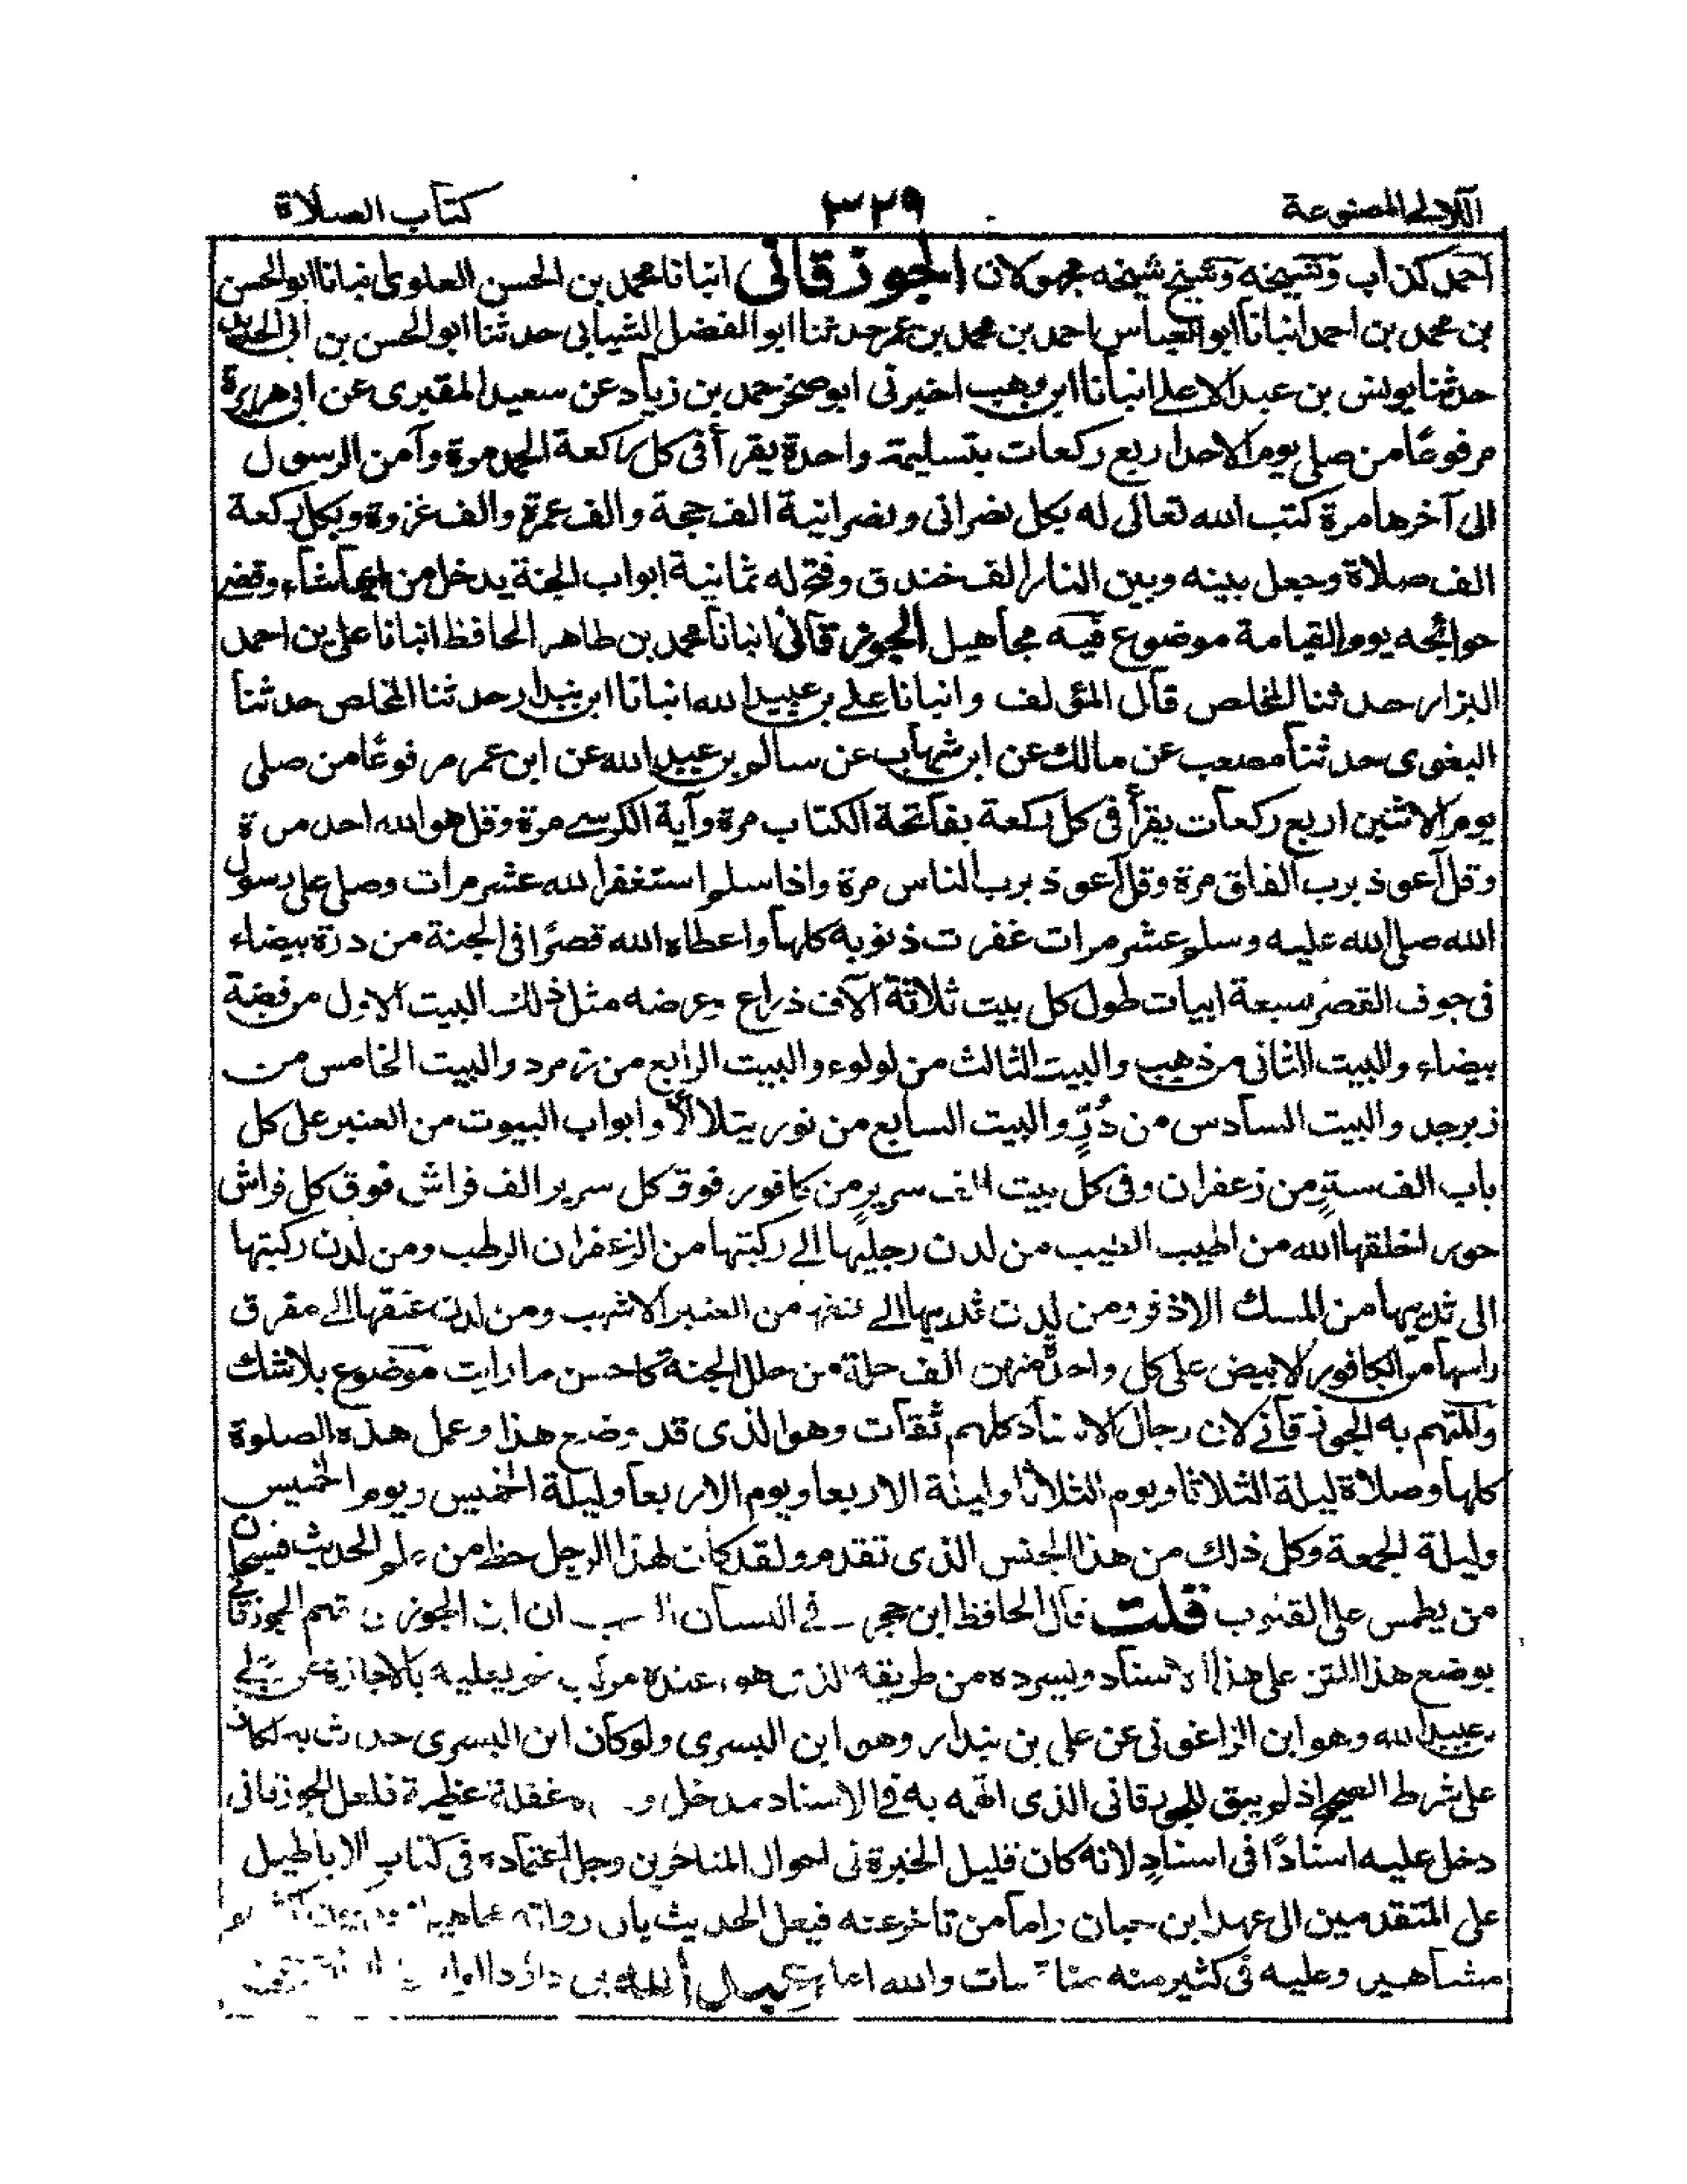 اللآلى المصنوعة ٣٢٩ كتاب الصلاة
احمد كذاب وشيخه وشيخ شيخه مجهولان الجوزقانى انبانا محمد بن الحسن العلوى انبانا ابو الحسن
بن محمد بن احمد انبانا ابو العباس احمد بن محمد بن عمر حدثنا ابو الفضل الشيبانى حدثنا ابو الحسن بن ابى الحديد
حدثنا يونس بن عبد الاعلے انبانا ابن وهب اخبرنى ابو صخر حمد بن زياد عن سعيد المقبرى عن ابى هريرة
مرفوعًا من صلى يوم الاحد اربع ركعات بتسليمة واحدة يقرأ فى كل ركعة الحمد مرة وآمن الرسول
الى آخرها مرة كتب الله تعالى له بكل نصرانى ونصرانية الف حجة والف عمرة والف غزوة وبكل ركعة
الف صلاة وجعل بينه وبين النار الف خندق وفتح له ثمانية ابواب الجنة يدخل من ايها شاء وقضى
حوائجه يوم القيامة موضوع فيه مجاهيل الجوزقانى انبانا محمد بن طاهر الحافظ انبانا على بن احمد
البزار حدثنا المخلص قال المؤلف وانبانا علے بن عبيد الله انبانا ابن بندار حدثنا المخلص حدثنا
البغوى حدثنا مصعب عن مالك عن ابن شهاب عن سالم بن عبيد الله عن ابن عمر مرفوعًا من صلى
يوم الاثنين اربع ركعات يقرأ فى كل ركعة بفاتحة الكتاب مرة وآية الكرسے مرة وقل هو الله احد مرة
وقل اعوذ برب الفلق مرة وقل اعوذ برب الناس مرة واذا سلم استغفر الله عشر مرات وصلى على رسول
الله صلى الله عليه وسلم عشر مرات غفرت ذنوبه كلها واعطاه الله قصرًا فى الجنة من درة بيضاء
فى جوف القصر سبعة ابيات طول كل بيت ثلاثة آلاف ذراع وعرضه مثل ذلك البيت الاول من فضة
بيضاء والبيت الثانى من ذهب والبيت الثالث من لولوء والبيت الرابع من زمرد والبيت الخامس من
زبرجد والبيت السادس من دُرٍّ والبيت السابع من نور يتلألأ وابواب البيوت من العنبر على كل
باب الف سترٍ من زعفران وفى كل بيت الف سريرٍ من كافور فوق كل سرير الف فراش فوق كل فراش
حوراء خلقها الله من اطيب الطيب من لدن رجليها الے ركبتها من الزعفران الرطب ومن لدن ركبتها
الى ثدييها من المسك الاذفر ومن لدن ثدييها الے عنقها من العنبر الاشهب ومن لدن عنقها الے مفرق
راسها من الكافور الابيض على كل واحدة منهن الف حلة من حلل الجنة كاحسن ما رايت موضوع بلا شك
والمتهم به الجوزقانے لان رجال الاسناد كلهم ثقات وهو الذى قد وضع هذا وعمل هذه الصلوة
كلها وصلاة ليلة الثلاثا ويوم الثلاثا وليلة الاربعا ويوم الاربعا وليلة الخميس ويوم الخميس
وليلة الجمعة وكل ذلك من هذا الجنس الذى تقدم ولقد كان لهذا الرجل حظ من علم الحديث فسبحان
من يطمس على القلوب قلت قال الحافظ ابن حجر فے اللسان ان ابن الجوزى تهم الجوزقانے
بوضع هذا المتن على هذا الاسناد ويسرده من طريقه الذى هو عنده مركب خر يعليه بالاجازة عن على
بن عبيد الله وهو ابن الزاغونى عن على بن بندار وهو ابن البسرى ولو كان ابن البسرى حدث به لكان
على شرط الصحيح اذ لم يبق للجوزقانى الذى اتهمه به فے الاسناد مدخل غفلة عظيمة فلعل الجوزقانى
دخل عليه اسنادًا فى اسنادٍ لانه كان قليل الخبرة فى احوال المتاخرين وجل اعتماده فى كتاب الاباطيل
على المتقدمين الى عهد ابن حبان واما من تاخر عنه فيعل الحديث بان رواته مجاهيل
مشاهير وعليه فى كثير منه مناقشات والله اعلم